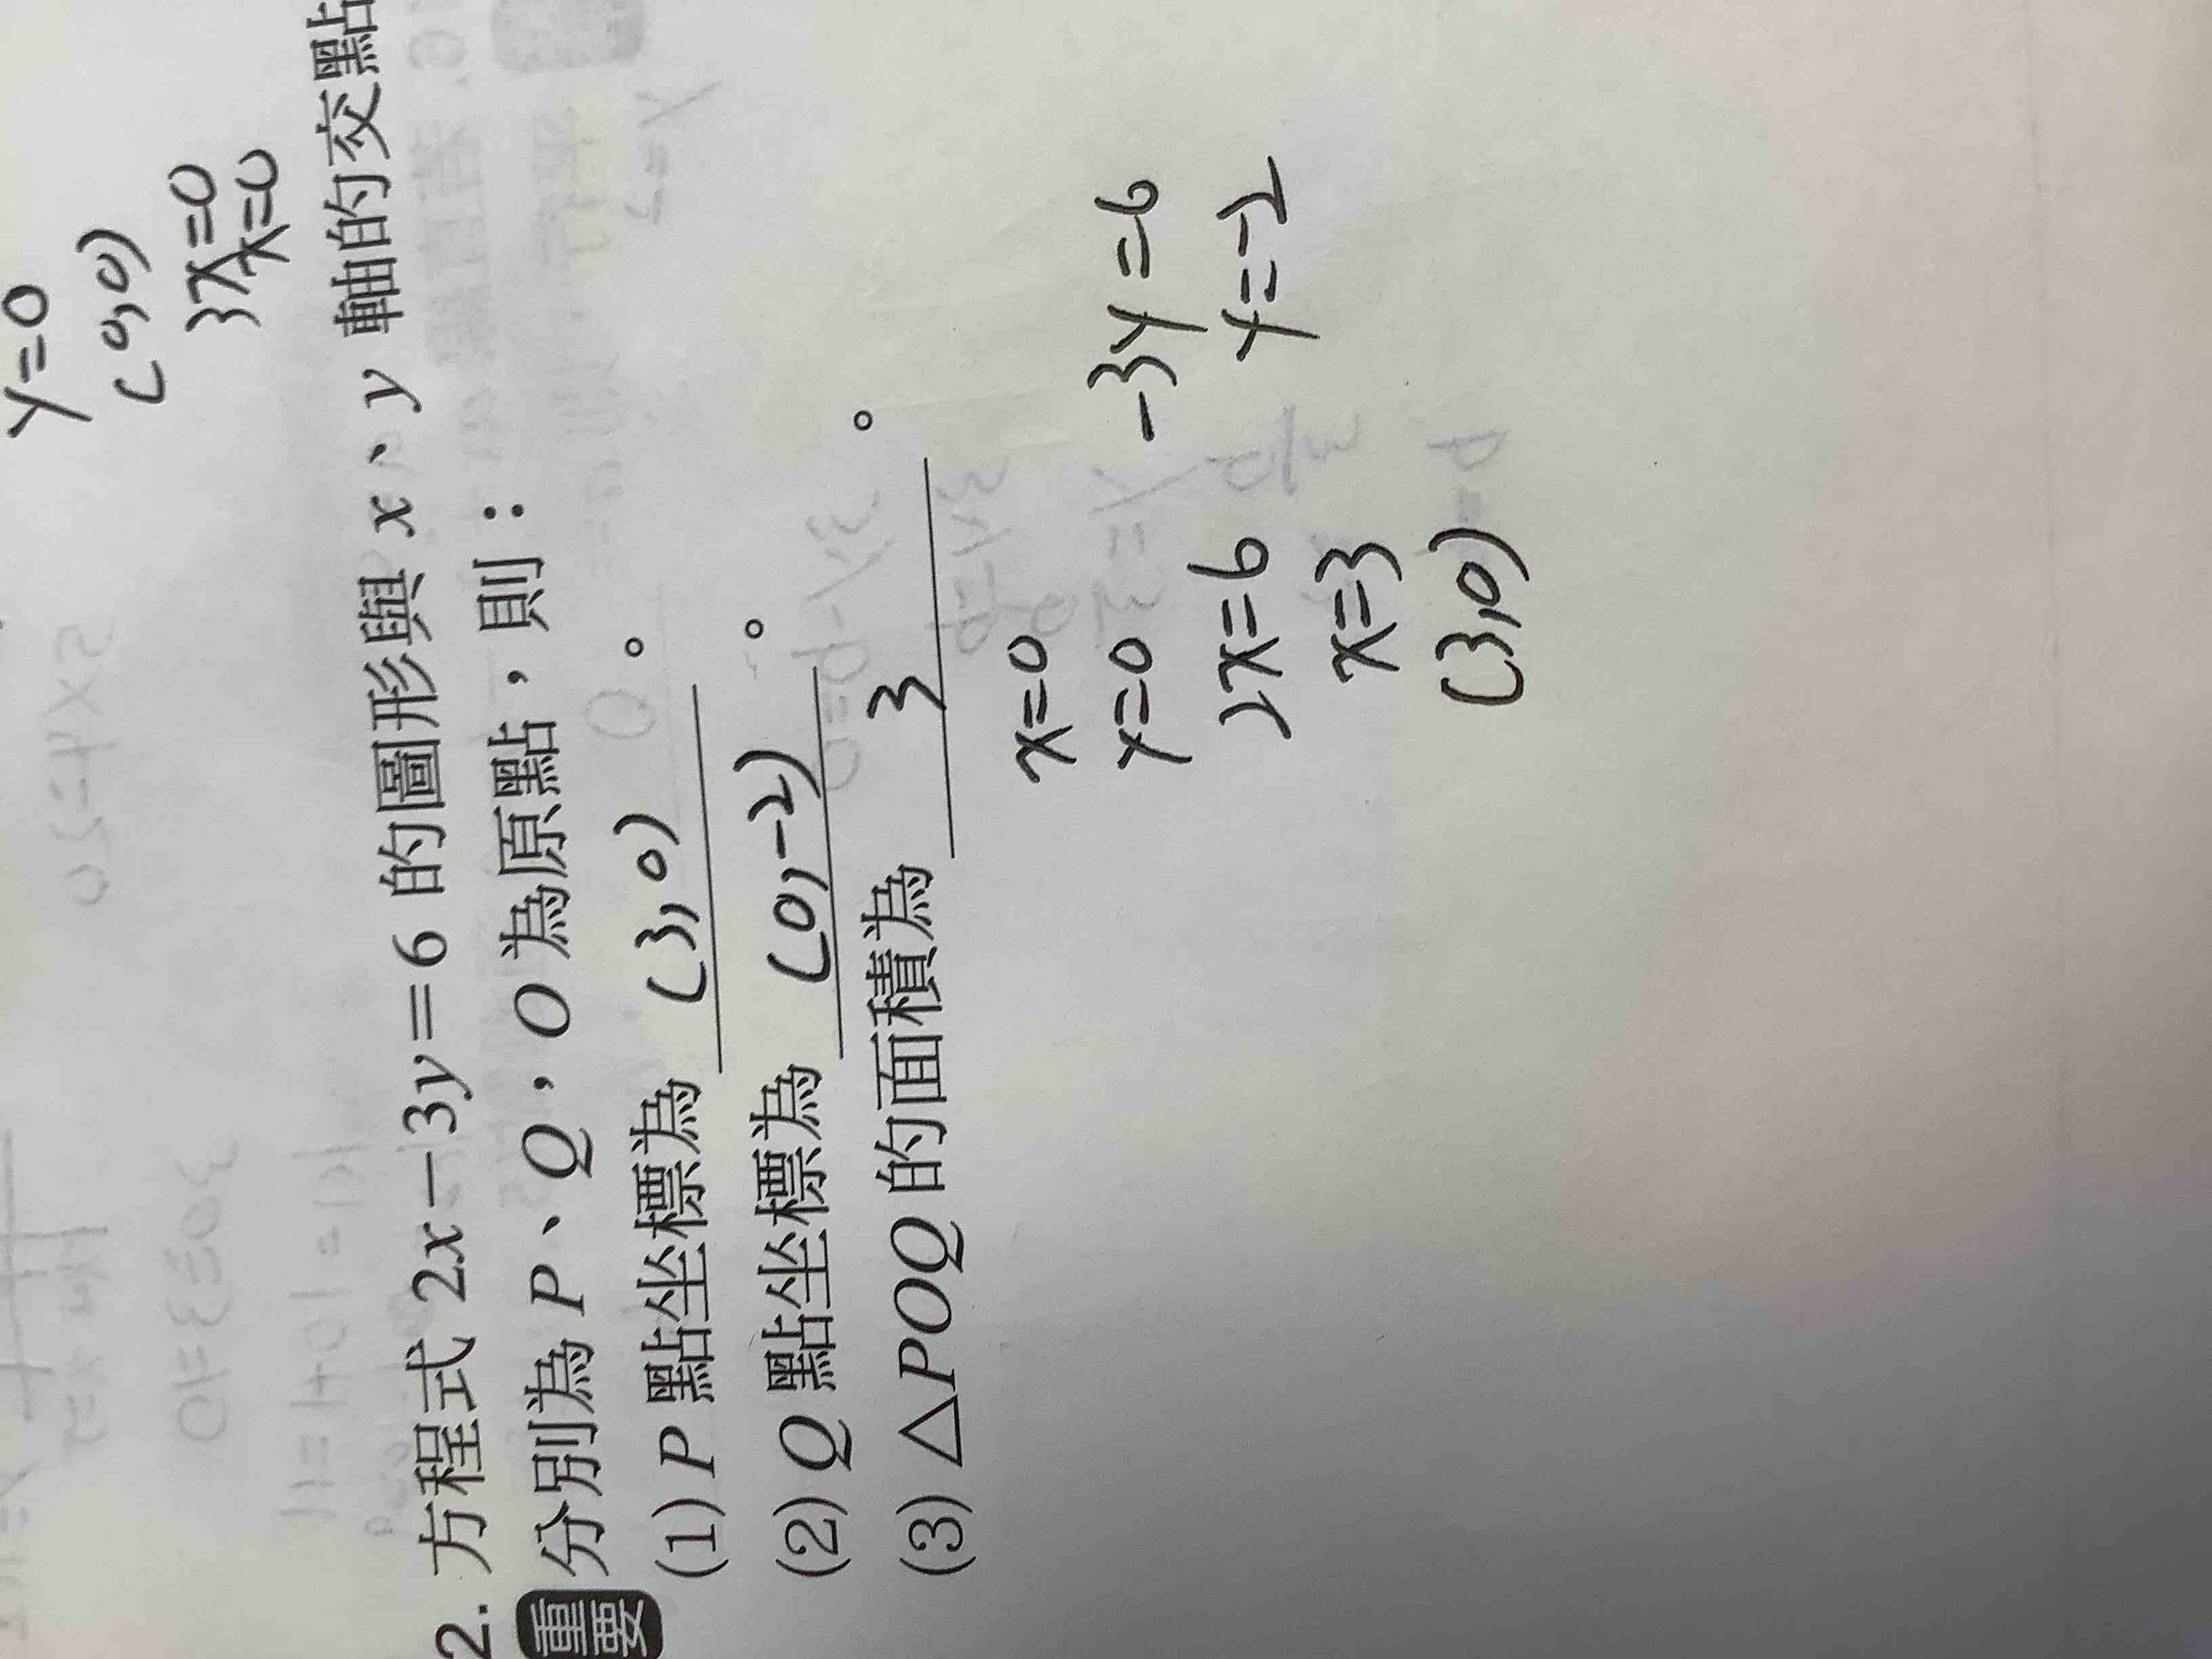 y=0
(0,0)
3x=0
x=0
2. 方程式 2x－3y＝6 的圖形與 x、y 軸的交點
重要 分別為 P、Q，O 為原點，則：
(1) P 點坐標為 (3,0) 。
(2) Q 點坐標為 (0,-2) 。
(3) △POQ 的面積為 3 。
x=0
y=0 -3y=6
2x=6 y=-2
x=3
(3,0)